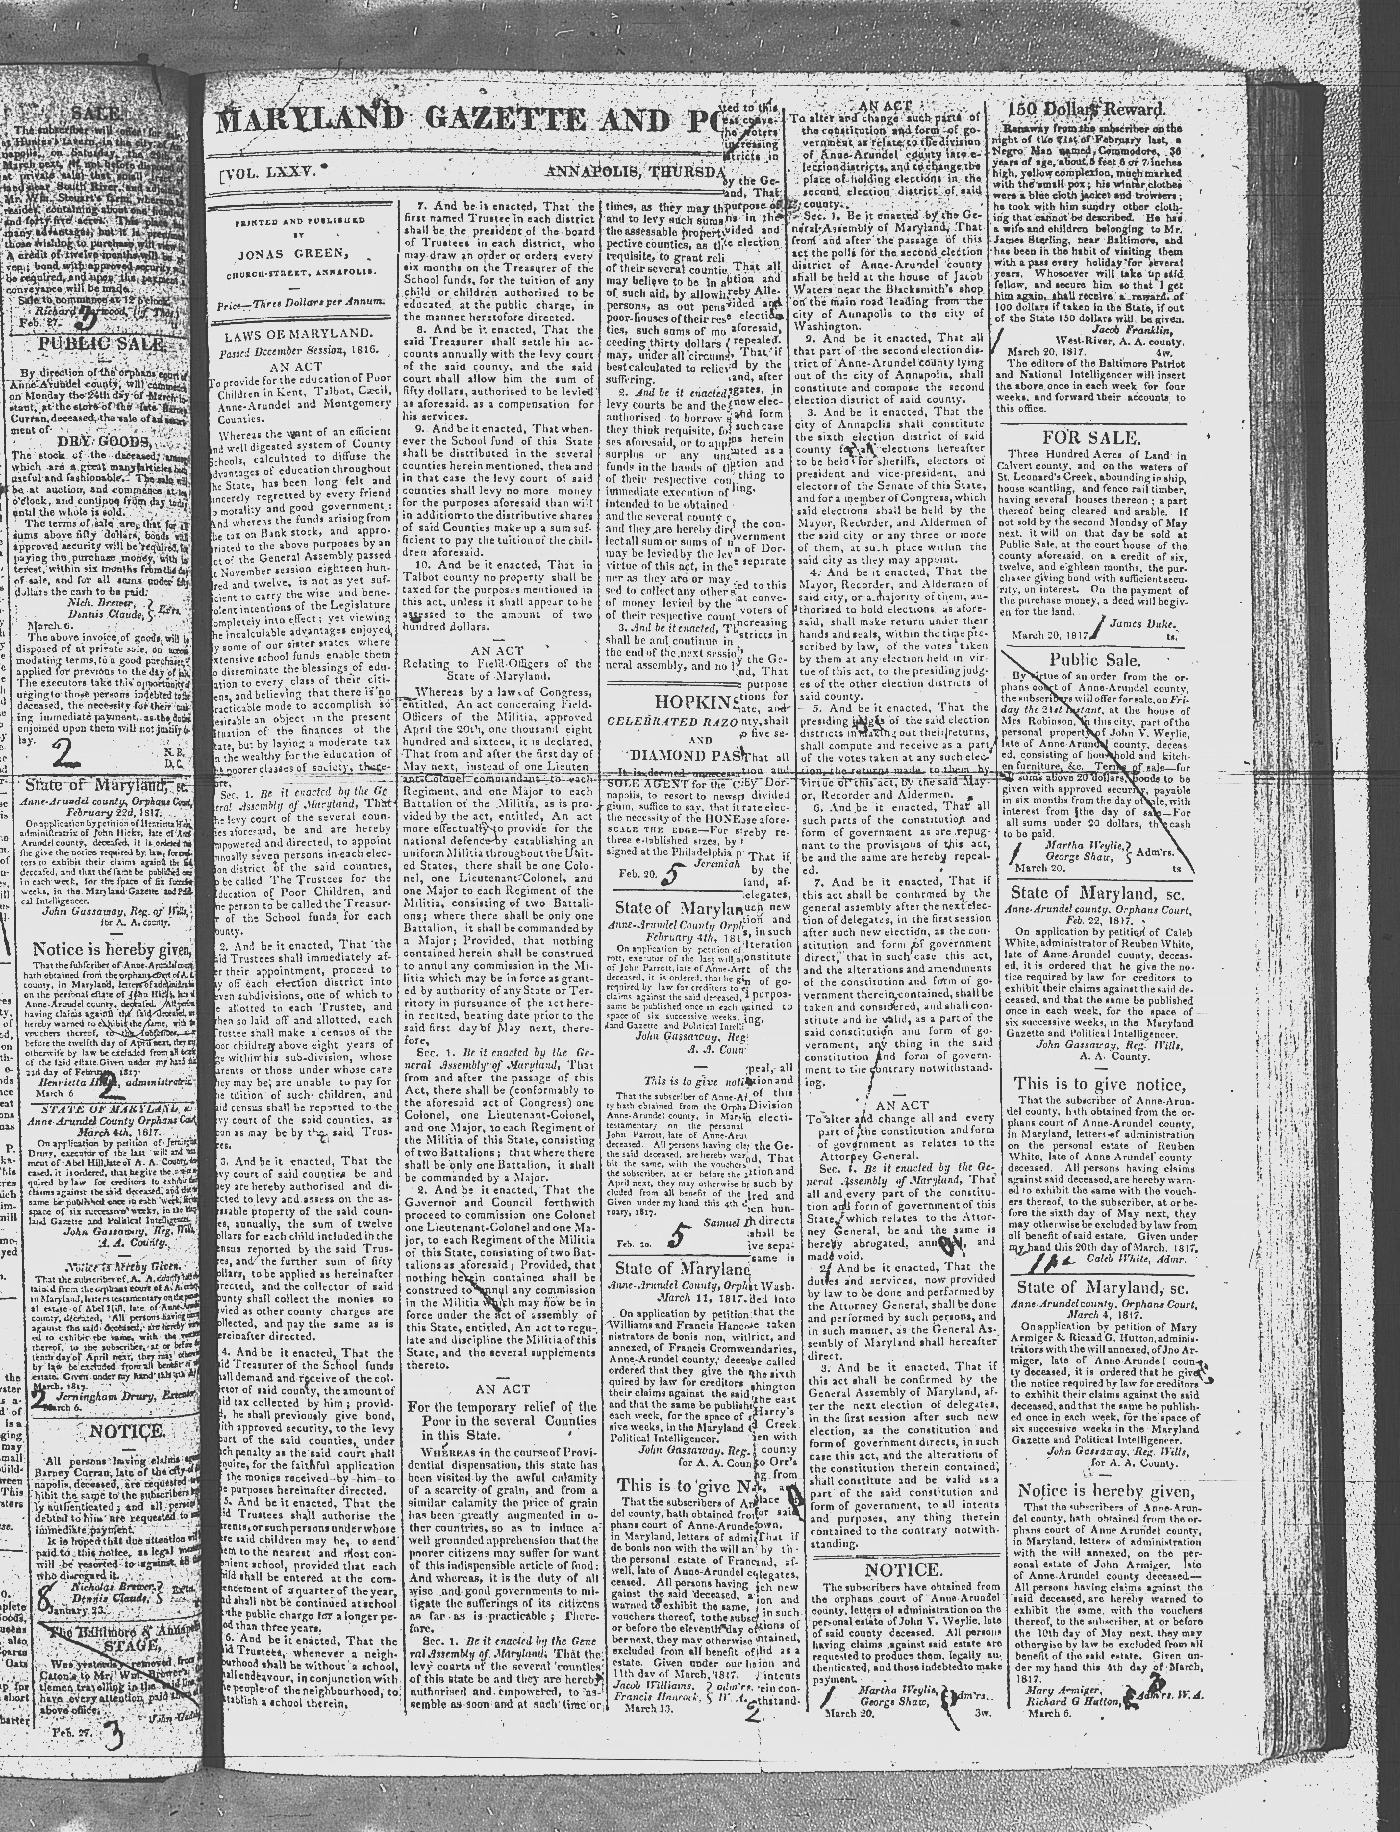 SALE.
The subscriber will offer for sale,
March next, if not before disposed
at private sale) that small tract
land near South River, and adjoining
Mr. Wm. Steuart's farm, whereon he
resides, containing about one hundred
many advantages, but it is presumed
those wishing to purchase will view it.
A credit of twelve months will be
given; bond with approved security will
be required, and upon the payment a
conveyance will be made.
Sale to commence at 12 o'clock.
Feb. 27.
PUBLIC SALE.
By direction of the orphans court of
Anne-Arundel county, will commence
on Monday the 24th day of March in-
stant, at the store of the late Barney
Curran, deceased, the sale of an assort-
ment of
DRY GOODS,
The stock of the deceased, among
which are a great many articles both
useful and fashionable. The sale will
be at auction, and commence at ten
o'clock, and continue from day to day
until the whole is sold.
The terms of sale are, that for all
sums above fifty dollars, bonds with
approved security will be required, for
paying the purchase money, with in-
terest, within six months from the day
of sale, and for all sums under fifty
dollars the cash to be paid.
Nich. Brewer, } Exrs.
Dennis Claude, }
March 6.
The above invoice of goods, will be
disposed of at private sale, on accom-
modating terms, to a good purchaser, if
applied for previous to the day of sale.
The executors take this opportunity of
urging to those persons indebted to the
deceased, the necessity for their mak-
ing immediate payment, as the duties
enjoined upon them will not justify de-
lay.
N. B.
D. C.
2
State of Maryland, sc.
Anne-Arundel county, Orphans Court,
February 22d, 1817.
On application by petition of Henrietta Hicks,
administratrix of John Hicks, late of Anne-
Arundel county, deceased, it is ordered that
she give the notice required by law, for credi-
tors to exhibit their claims against the said
deceased, and that the same be published once
in each week, for the space of six successive
weeks, in the Maryland Gazette and Politi-
cal Intelligencer.
John Gassaway, Reg. of Wills,
for A. A. county.
Notice is hereby given,
That the subscriber of Anne-Arundel county,
hath obtained from the orphans court of A. A.
county, in Maryland, letters of administration
on the personal estate of John Hicks, late of
Anne-Arundel county, deceased. All persons
having claims against the said deceased, are
hereby warned to exhibit the same, with the
vouchers thereof, to the subscriber, at or
before the twelfth day of April next, they may
otherwise by law be excluded from all benefit
of the said estate. Given under my hand this
22d day of February 1817.
Henrietta Hicks, administratrix.
March 6
2
STATE OF MARYLAND, sc.
Anne-Arundel County Orphans Court,
March 4th, 1817.
On application by petition of Jerningham
Drury, executor of the last will and testa-
ment of Abel Hill, late of A. A. County, de-
ceased, it is ordered, that he give the notice re-
quired by law for creditors to exhibit their
claims against the said deceased, and that the
same be published once in each week, for the
space of six successive weeks, in the Mary-
land Gazette and Political Intelligencer.
John Gassaway, Reg. Wills,
A. A. County.
Notice is hereby Given,
That the subscriber of A. A. county hath ob-
tained from the orphans court of A. A. county
in Maryland, letters testamentary on the person-
al estate of Abel Hill, late of Anne-Arundel
county, deceased. All persons having claims
against the said deceased, are hereby warn-
ed to exhibit the same, with the vouchers
thereof, to the subscriber, at or before the
tenth day of April next, they may otherwise
by law be excluded from all benefit of said
estate. Given under my hand this 4th day of
March, 1817.
Jerningham Drury, Executor
March 6.
2
NOTICE.
All persons having claims against
Barney Curran, late of the city of An-
napolis, deceased, are requested to ex-
hibit the same to the subscribers legal-
ly authenticated; and all persons in-
debted to him are requested to make
immediate payment.
It is hoped that due attention will be
paid to this notice, as legal measures
will be resorted to against all those
who disregard it.
Nicholas Brewer, } Exrs.
Dennis Claude, }
January 23.
8
The Baltimore & Annapolis
STAGE,
Was yesterday removed from
Caton's to Mr. Wm. Brewer's,
tlemen travelling in the said
have every attention paid them
above office.
Feb. 27.
3
MARYLAND GAZETTE AND PO
[VOL. LXXV. ANNAPOLIS, THURSDA
PRINTED AND PUBLISHED
BY
JONAS GREEN,
CHURCH-STREET, ANNAPOLIS.
Price—Three Dollars per Annum.
LAWS OF MARYLAND.
Passed December Session, 1816.
AN ACT
To provide for the education of Poor
Children in Kent, Talbot, Cæcil,
Anne-Arundel and Montgomery
Counties.
Whereas the want of an efficient
and well digested system of County
Schools, calculated to diffuse the
advantages of education throughout
the State, has been long felt and
sincerely regretted by every friend
to morality and good government:
And whereas the funds arising from
the tax on Bank stock, and appro-
priated to the above purposes by an
act of the General Assembly passed
at November session eighteen hun-
dred and twelve, is not as yet suf-
ficient to carry the wise and bene-
volent intentions of the Legislature
completely into effect; yet viewing
the incalculable advantages enjoyed
by some of our sister states where
extensive school funds enable them
to disseminate the blessings of edu-
cation to every class of their citi-
zens, and believing that there is no
practicable mode to accomplish so
desirable an object in the present
state, but by laying a moderate tax
on the wealthy for the education of
the poorer classes of society, there-
Sec. 1. Be it enacted by the Ge-
neral Assembly of Maryland, That
the levy court of the several coun-
ties aforesaid, be and are hereby
empowered and directed, to appoint
annually seven persons in each elec-
tion district of the said counties,
to be called The Trustees for the
Education of Poor Children, and
one person to be called the Treasur-
er of the School funds, for each
county.
2. And be it enacted, That the
said Trustees shall immediately af-
ter their appointment, proceed to
lay off each election district into
seven subdivisions, one of which to
be allotted to each Trustee, and
when so laid off and allotted, each
Trustee shall make a census of the
poor children above eight years of
age within his sub-division, whose
parents or those under whose care
they may be, are unable to pay for
the tuition of such children, and
said census shall be reported to the
levy court of the said counties, as
soon as may be by the said Trus-
tees.
3. And be it enacted, That the
levy court of said counties be and
they are hereby authorised and di-
rected to levy and assess on the as-
sessable property of the said coun-
ties, annually, the sum of twelve
dollars for each child included in the
census reported by the said Trus-
tees, and the further sum of fifty
dollars, to be applied as hereinafter
directed, and the collector of said
county shall collect the monies so
levied as other county charges are
collected, and pay the same as is
hereinafter directed.
4. And be it enacted, That the
said Treasurer of the School funds
shall demand and receive of the col-
lector of said county, the amount of
said tax collected by him; provid-
ed, he shall previously give bond,
with approved security, to the levy
court of the said counties, under
such penalty as the said court shall
require, for the faithful application
of the monies received by him to
the purposes hereinafter directed.
5. And be it enacted, That the
said Trustees shall authorise the
parents, or such persons under whose
care said children may be, to send
them to the nearest and most con-
venient school, provided that each
child shall be entered at the com-
mencement of a quarter of the year,
and shall not be continued at school
at the public charge for a longer pe-
riod than three years.
6. And be it enacted, That the
said Trustees, whenever a neigh-
bourhood shall be without a school,
shall endeavour, in conjunction with
the people of the neighbourhood, to
establish a school therein,
7. And be it enacted, That the
first named Trustee in each district
shall be the president of the board
of Trustees in each district, who
may draw an order or orders every
six months on the Treasurer of the
School funds, for the tuition of any
child or children authorised to be
educated at the public charge, in
the manner heretofore directed.
8. And be it enacted, That the
said Treasurer shall settle his ac-
counts annually with the levy court
of the said county, and the said
court shall allow him the sum of
fifty dollars, authorised to be levied
as aforesaid, as a compensation for
his services.
9. And be it enacted, That when-
ever the School fund of this State
shall be distributed in the several
counties herein mentioned, then and
in that case the levy court of said
counties shall levy no more money
for the purposes aforesaid than will
in addition to the distributive shares
of said Counties make up a sum suf-
ficient to pay the tuition of the chil-
dren aforesaid.
10. And be it enacted, That in
Talbot county no property shall be
taxed for the purposes mentioned in
this act, unless it shall appear to be
assessed to the amount of two
hundred dollars.
AN ACT
Relating to Field-Officers of the
State of Maryland.
Whereas by a law of Congress,
entitled, An act concerning Field-
Officers of the Militia, approved
April the 20th, one thousand eight
hundred and sixteen, it is declared,
That from and after the first day of
May next, instead of one Lieuten-
ant-Colonel commandant to each
Regiment, and one Major to each
Battalion of the Militia, as is pro-
vided by the act, entitled, An act
more effectually to provide for the
national defence by establishing an
uniform Militia throughout the Unit-
ed States, there shall be one Colo-
nel, one Lieutenant-Colonel, and
one Major to each Regiment of the
Militia, consisting of two Battali-
ons; where there shall be only one
Battalion, it shall be commanded by
a Major; Provided, that nothing
contained herein shall be construed
to annul any commission in the Mi-
litia which may be in force as grant-
ed by authority of any State or Ter-
ritory in pursuance of the act here-
in recited, bearing date prior to the
said first day of May next, there-
fore,
Sec. 1. Be it enacted by the Ge-
neral Assembly of Maryland, That
from and after the passage of this
Act, there shall be (conformably to
the aforesaid act of Congress) one
Colonel, one Lieutenant-Colonel,
and one Major, to each Regiment of
the Militia of this State, consisting
of two Battalions; that where there
shall be only one Battalion, it shall
be commanded by a Major.
2. And be it enacted, That the
Governor and Council forthwith
proceed to commission one Colonel
one Lieutenant-Colonel and one Ma-
jor, to each Regiment of the Militia
of this State, consisting of two Bat-
talions as aforesaid; Provided, that
nothing herein contained shall be
construed to annul any commission
in the Militia which may now be in
force under the act of assembly of
this State, entitled, An act to regu-
late and discipline the Militia of this
State, and the several supplements
thereto.
AN ACT
For the temporary relief of the
Poor in the several Counties
in this State.
WHEREAS in the course of Provi-
dential dispensation, this state has
been visited by the awful calamity
of a scarcity of grain, and from a
similar calamity the price of grain
has been greatly augmented in o-
ther countries, so as to induce a
well grounded apprehension that the
poorer citizens may suffer for want
of this indispensible article of food:
And whereas, it is the duty of all
wise and good governments to mi-
tigate the sufferings of its citizens
as far as is practicable; There-
fore,
Sec. 1. Be it enacted by the Gene
ral Assembly of Maryland, That the
levy courts of the several counties
of this state be and they are hereby
authorised and empowered, to as-
semble as soon and at such time or
times, as they may th
and to levy such sums
the assessable property
pective counties, as th
requisite, to grant reli
of their several countie
may believe to be in a
of such aid, by allowin
persons, as out pens
poor-houses of their res
ties, such sums of mo
ceeding thirty dollars
may, under all circums
best calculated to reliev
suffering.
2. And be it enacted,
levy courts be and the
authorised to borrow
they think requisite, fo
ses aforesaid, or to appr
surplus or any un
funds in the hands of th
of their respective cou
immediate execution of
intended to be obtained
and the several county c
and they are hereby dire
lect all sum or sums of m
may be levied by the lev
virtue of this act, in the
ner as they are or may
sed to collect any other s
of money levied by the
of their respective count
3. And be it enacted, T
shall be and continue in
the end of the next sessio
neral assembly, and no l
HOPKINS
CELEBRATED RAZO
AND
DIAMOND PAS
It is deemed unnecess
SOLE AGENT for the C
napolis, to resort to newsp
gium, suffice to say, that it
the necessity of the HONE
SCALE THE EDGE—For s
three established sizes, by
signed at the Philadelphia p
Jeremiah
Feb. 20.
5
State of Marylan
Anne-Arundel County Orph
February 4th, 181
On application by petition of
rott, executor of the last will a
of John Parrott, late of Anne-Ar
deceased, it is ordered, that he gi
required by law for creditors to
claims against the said deceased,
me be published once in each
space of six successive weeks,
land Gazette and Political Intelli
John Gassaway, Reg
A. A. Coun
This is to give noti
That the subscriber of Anne-A
ty hath obtained from the Orph
Anne-Arundel county, in Mary
testamentary on the personal
John Parrott, late of Anne-Aru
deceased. All persons having cla
the said deceased, are hereby war
bit the same, with the vouchers
the subscriber, at or before the
April next, they may otherwise b
cluded from all benefit of the
Given under my hand this 4th d
ruary, 1817.
Samuel P
Feb. 20.
5
State of Maryland
Anne-Arundel County, Orpha
March 11, 1817.
On application by petition
Williams and Francis Hanco
nistrators de bonis non, wi
annexed, of Francis Cromwe
Anne-Arundel county, decea
ordered that they give the
quired by law for creditors
their claims against the said
and that the same be publish
each week, for the space of s
sive weeks, in the Maryland G
Political Intelligencer.
John Gassaway, Reg.
for A. A. Coun
This is to give N
That the subscribers of An
del county, hath obtained from
phans court of Anne-Arundel
in Maryland, letters of admi
de bonis non with the will an
the personal estate of Franc
well, late of Anne-Arundel co
ceased. All persons having
against the said deceased, a
warned to exhibit the same,
vouchers thereof, to the subsc
or before the eleventh day of
ber next, they may otherwise
excluded from all benefit of
estate. Given under our ha
11th day of March, 1817.
Jacob Williams, } adm'rs.
Francis Hancock, } W. A.
March 13.
2
ted to this
he voters
increasing
stricts in
by the Ge-
and, That
purpose of
ns in the
vided and
e election
That all
tion and
reby Alle-
vided and
election
aforesaid,
repealed.
That if
d by the
and, after
egates, in
new elec-
and form
such case
ns herein
nted as a
tion and
thing to
ing.
the con-
vernment
n of Dor-
separate
ed to this
at conve-
voters of
ncreasing
stricts in
the Ge-
nd, That
purpose
tions, and
nty, shall
to five se-
That all
tion and
by Dor-
divided
rate elec-
se afore-
reby re-
That if
by the
land, af-
elegates,
uch new
tion and
s, in such
lteration
onstitute
t of the
of go-
purpos-
ained to
ing.
peal, all
sion and
of this
Division
the Ge-
nd, That
tion and
such by
red and
en hun-
directs
shall be
ve sepa-
same is
Wash-
ed into
that the
trict, and
be called
the sixth
hington
the east
Harry's
Creek
en with
county
o Orr's
ng from
place
for said
own.
That if
by th
nd, af-
legates,
ch new
ion and
in such
tions of
ntained,
tion and
intents
rein con-
thstand-
AN ACT
To alter and change such parts of
the constitution and form of go-
vernment as relate to the division
of Anne-Arundel county into e-
lection districts, and to change the
place of holding elections in the
second election district of said
county.
Sec. 1. Be it enacted by the Ge-
neral Assembly of Maryland, That
from and after the passage of this
act the polls for the second election
district of Anne-Arundel county
shall be held at the house of Jacob
Waters near the Blacksmith's shop
on the main road leading from the
city of Annapolis to the city of
Washington.
2. And be it enacted, That all
that part of the second election dis-
trict of Anne-Arundel county lying
out of the city of Annapolis, shall
constitute and compose the second
election district of said county.
3. And be it enacted, That the
city of Annapolis shall constitute
the sixth election district of said
county for all elections hereafter
to be held for sheriffs, electors of
president and vice-president, and
electors of the Senate of this State,
and for a member of Congress, which
said elections shall be held by the
Mayor, Recorder, and Aldermen of
the said city or any three or more
of them, at such place within the
said city as they may appoint.
4. And be it enacted, That the
Mayor, Recorder, and Aldermen of
said city, or a majority of them, au-
thorised to hold elections as afore-
said, shall make return under their
hands and seals, within the time pre-
scribed by law, of the votes taken
by them at any election held in vir-
tue of this act, to the presiding judg-
es of the other election districts of
said county.
5. And be it enacted, That the
presiding judges of the said election
districts in making out their returns,
shall compute and receive as a part
of the votes taken at any such elec-
tion, the returns made to them by
virtue of this act, by the said May-
or, Recorder and Aldermen.
6. And be it enacted, That all
such parts of the constitution and
form of government as are repug-
nant to the provisions of this act,
be and the same are hereby repeal-
ed.
7. And be it enacted, That if
this act shall be confirmed by the
general assembly after the next elec-
tion of delegates, in the first session
after such new election, as the con-
stitution and form of government
direct, that in such case this act,
and the alterations and amendments
of the constitution and form of go-
vernment therein contained, shall be
taken and considered, and shall con-
stitute and be valid, as a part of the
said constitution and form of go-
vernment, any thing in the said
constitution and form of govern-
ment to the contrary notwithstand-
ing.
AN ACT
To alter and change all and every
part of the constitution and form
of government as relates to the
Attorney General.
Sec. 1. Be it enacted by the Ge-
neral Assembly of Maryland, That
all and every part of the constitu-
tion and form of government of this
State, which relates to the Attor-
ney General, be and the same is
hereby abrogated, annulled, and
made void.
2. And be it enacted, That the
duties and services, now provided
by law to be done and performed by
the Attorney General, shall be done
and performed by such persons, and
in such manner, as the General As-
sembly of Maryland shall hereafter
direct.
3. And be it enacted, That if
this act shall be confirmed by the
General Assembly of Maryland, af-
ter the next election of delegates,
in the first session after such new
election, as the constitution and
form of government directs, in such
case this act, and the alterations of
the constitution therein contained,
shall constitute and be valid as a
part of the said constitution and
form of government, to all intents
and purposes, any thing therein
contained to the contrary notwith-
standing.
NOTICE.
The subscribers have obtained from
the orphans court of Anne-Arundel
county, letters of administration on the
personal estate of John V. Weylie, late
of said county deceased. All persons
having claims against said estate are
requested to produce them, legally au-
thenticated, and those indebted to make
payment.
Martha Weylie, } Adm'rs.
George Shaw, }
March 20. 3w.
150 Dollars Reward.
Ranaway from the subscriber on the
night of the 21st of February last, a
Negro Man named Commodore, 36
years of age, about 5 feet 6 or 7 inches
high, yellow complexion, much marked
with the small pox; his winter clothes
were a blue cloth jacket and trowsers;
he took with him sundry other cloth-
ing that cannot be described. He has
a wife and children belonging to Mr.
James Sterling, near Baltimore, and
has been in the habit of visiting them
with a pass every holiday for several
years. Whosoever will take up said
fellow, and secure him so that I get
him again, shall receive a reward of
100 dollars if taken in the State, if out
of the State 150 dollars will be given.
Jacob Franklin,
West-River, A. A. county.
March 20, 1817. 4w.
The editors of the Baltimore Patriot
and National Intelligencer will insert
the above once in each week for four
weeks, and forward their accounts to
this office.
FOR SALE.
Three Hundred Acres of Land in
Calvert county, and on the waters of
St. Leonard's Creek, abounding in ship,
house scantling, and fence rail timber,
having several houses thereon; a part
thereof being cleared and arable. If
not sold by the second Monday of May
next, it will on that day be sold at
Public Sale, at the court house of the
county aforesaid, on a credit of six,
twelve, and eighteen months, the pur-
chaser giving bond with sufficient secu-
rity, on interest. On the payment of
the purchase money, a deed will begiv-
en for the land.
James Duke.
March 20, 1817. ts.
Public Sale.
By virtue of an order from the or-
phans court of Anne-Arundel county,
the subscribers will offer for sale, on Fri-
day the 21st instant, at the house of
Mrs Robinson, in this city, part of the
personal property of John V. Weylie,
late of Anne-Arundel county, deceas
ed, consisting of household and kitch-
en furniture, &c. Terms of sale—for
all sums above 20 dollars, bonds to be
given with approved security, payable
in six months from the day of sale, with
interest from the day of sale—For
all sums under 20 dollars, the cash
to be paid.
Martha Weylie, } Adm'rs.
George Shaw, }
March 20. ts
State of Maryland, sc.
Anne-Arundel county, Orphans Court,
Feb. 22, 1817.
On application by petition of Caleb
White, administrator of Reuben White,
late of Anne-Arundel county, deceas-
ed, it is ordered that he give the no-
tice required by law for creditors to
exhibit their claims against the said de-
ceased, and that the same be published
once in each week, for the space of
six successive weeks, in the Maryland
Gazette and Political Intelligencer.
John Gassaway, Reg. Wills,
A. A. County.
This is to give notice,
That the subscriber of Anne-Arun-
del county, hath obtained from the or-
phans court of Anne-Arundel county,
in Maryland, letters of administration
on the personal estate of Reuben
White, late of Anne-Arundel county
deceased. All persons having claims
against said deceased, are hereby warn-
ed to exhibit the same with the vouch-
ers thereof, to the subscriber, at or be-
fore the sixth day of May next, they
may otherwise be excluded by law from
all benefit of said estate. Given under
my hand this 20th day of March, 1817.
Caleb White, Admr.
State of Maryland, sc.
Anne-Arundel county, Orphans Court,
March 4, 1817.
On application by petition of Mary
Armiger & Ricard G. Hutton, adminis-
trators with the will annexed, of Jno Ar-
miger, late of Anne-Arundel coun-
ty deceased, it is ordered that he give
the notice required by law for creditors
to exhibit their claims against the said
deceased, and that the same be publish-
ed once in each week, for the space of
six successive weeks in the Maryland
Gazette and Political Intelligencer.
John Gassaway, Reg. Wills,
for A. A. County.
Notice is hereby given,
That the subscribers of Anne-Arun-
del county, hath obtained from the or-
phans court of Anne Arundel county,
in Maryland, letters of administration
with the will annexed, on the per-
sonal estate of John Armiger, late
of Anne-Arundel county deceased—
All persons having claims against the
said deceased, are hereby warned to
exhibit the same, with the vouchers
thereof, to the subscriber, at or before
the 10th day of May next, they may
otherwise by law be excluded from all
benefit of the said estate. Given un-
der my hand this 4th day of March,
1817.
Mary Armiger, } Adm'rs. W. A.
Richard G Hutton, }
March 6.